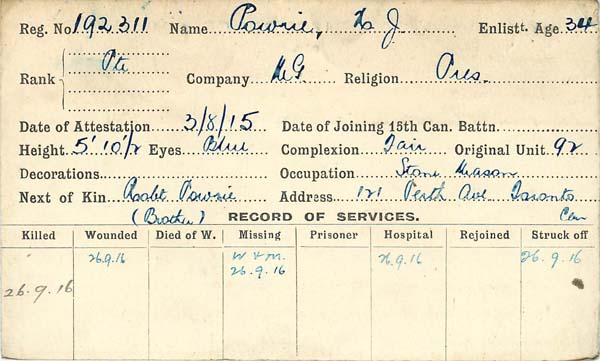 Reg. No. 192311 Name Pownie, J Enlistt. Age 34
Rank Pte Company Religion Pres.
Date of Attestation 3/8/15 Date of Joining 15th Can. Battn.
Height 5' 10 1/2 Eyes Blue Complexion Fair Original Unit 92
Decorations Occupation Stone Mason
Next of Kin Robt Pownie Address 121 Perth Ave Toronto
(Brother) RECORD OF SERVICES. Can
Killed Wounded Died of W. Missing Prisoner Hospital Rejoined Struck off
26.9.16 W & M. 26.9.16 26.9.16
26.9.16
26.9.16